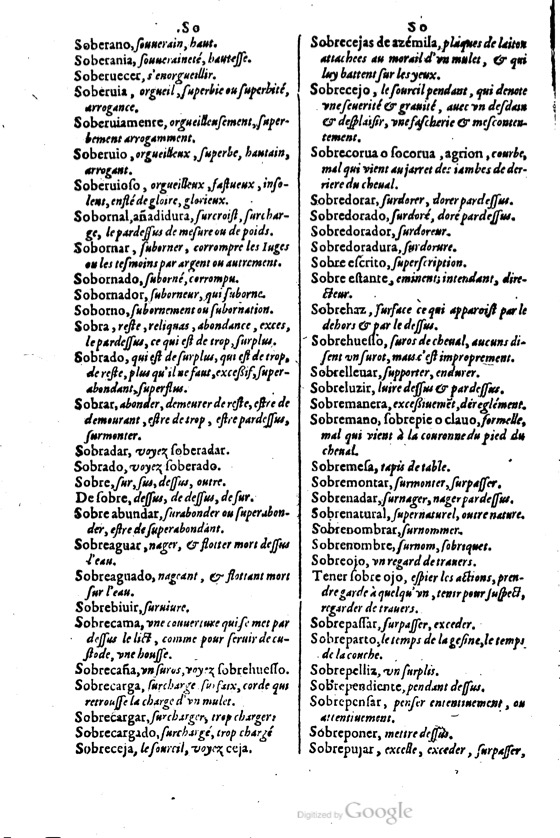 SO
Soberano, souuerain, haut.
Soberania, souueraineté, hautesse.
Soberuecer, s'enorgueillir.
Soberuia, orgueil, superbie ou superbité,
arrogance.
Soberuiamente, orgueilleusement, super-
bement arrogamment.
Soberuio, orgueilleux, superbe, hautain,
arrogant.
Soberuioso, orgueilleux, fastueux, inso-
lent, enflé de gloire, glorieux.
Sobornal, añadidura, surcroist, surchar-
ge, le pardessus de mesure ou de poids.
Sobornar, suborner, corrompre les Iuges
ou les tesmoins par argent ou autrement.
Sobornado, suborné, corrompu.
Sobornador, suborneur, qui suborne.
Soborno, subornement ou subornation.
Sobra, reste, reliquas, abondance, exces,
le pardessus, ce qui est de trop, surplus.
Sobrado, qui est de surplus, qui est de trop,
de reste, plus qu'il ne faut, excessif, super-
abondant, superflus.
Sobrar, abonder, demeurer de reste, estre de
demourant, estre de trop, estre pardessus,
surmonter.
Sobradar, voyez soberadar.
Sobrado, voyez soberado.
Sobre, sur, sus, dessus, outre.
De sobre, dessus, de dessus, de sur.
Sobre abundar, surabonder ou superabon-
der, estre de superabondant.
Sobreaguar, nager, & flotter mort dessus
l'eau.
Sobreaguado, nageant, & flottant mort
sur l'eau.
Sobrebiuir, suruiure.
Sobrecama, vne couuerture qui se met par
dessus le lict, comme pour seruir de cu-
stode, vne housse.
Sobrecaña, vn suros, voyez sobrehuesso.
Sobrecarga, surcharge surfaix, corde qui
retrousse la charge d'vn mulet.
Sobrecargar, surcharger, trop charger:
Sobrecargado, surchargé, trop chargé
Sobreceja, le sourcil, voyez ceja.
SO
Sobrecejas de azémila, plaques de laiton
attachees au morail d'vn mulet, & qui
luy battent sur les yeux.
Sobrecejo, le sourcil pendant, qui denote
vne seuerité & grauité, auec vn desdain
& desplaisir, vne fascherie & mesconten-
tement.
Sobrecorua o socorua, agrion, courbe,
mal qui vient au jarret des iambes de der-
riere du cheual.
Sobredorar, surdorer, dorer par dessus.
Sobredorado, surdoré, doré par dessus.
Sobredorador, surdoreur.
Sobredoradura, surdorure.
Sobre escrito, superscription.
Sobre estante, eminent; intendant, dire-
cteur.
Sobrehaz, surface ce qui apparoist par le
dehors & par le dessus.
Sobrehuesso, suros de cheual, aucuns di-
sent vn surot, mais c'est improprement.
Sobrelleuar, supporter, endurer.
Sobreluzir, luire dessus & par dessus.
Sobremanera, excessiuemēt, déreglément.
Sobremano, sobrepie o clauo, formelle,
mal qui vient à la couronne du pied du
cheual.
Sobremesa, tapis de table.
Sobremontar, surmonter, surpasser.
Sobrenadar, surnager, nager par dessus.
Sobrenatural, supernaturel, outre nature.
Sobrenombrar, surnommer.
Sobrenombre, surnom, sobriquet.
Sobreojo, vn regard de trauers.
Tener sobre ojo, espier les actions, pren-
dre garde à quelqu'vn, tenir pour suspect,
regarder de trauers.
Sobrepassar, surpasser, exceder.
Sobreparto, le temps de la gesine, le temps
de la couche.
Sobrepelliz, vn surplis.
Sobrependiente, pendant dessus.
Sobrepensar, penser ententiuement, ou
attentiuement.
Sobreponer, mettre dessus.
Sobrepujar, excelle, exceder, surpasser,
Digitized by Google